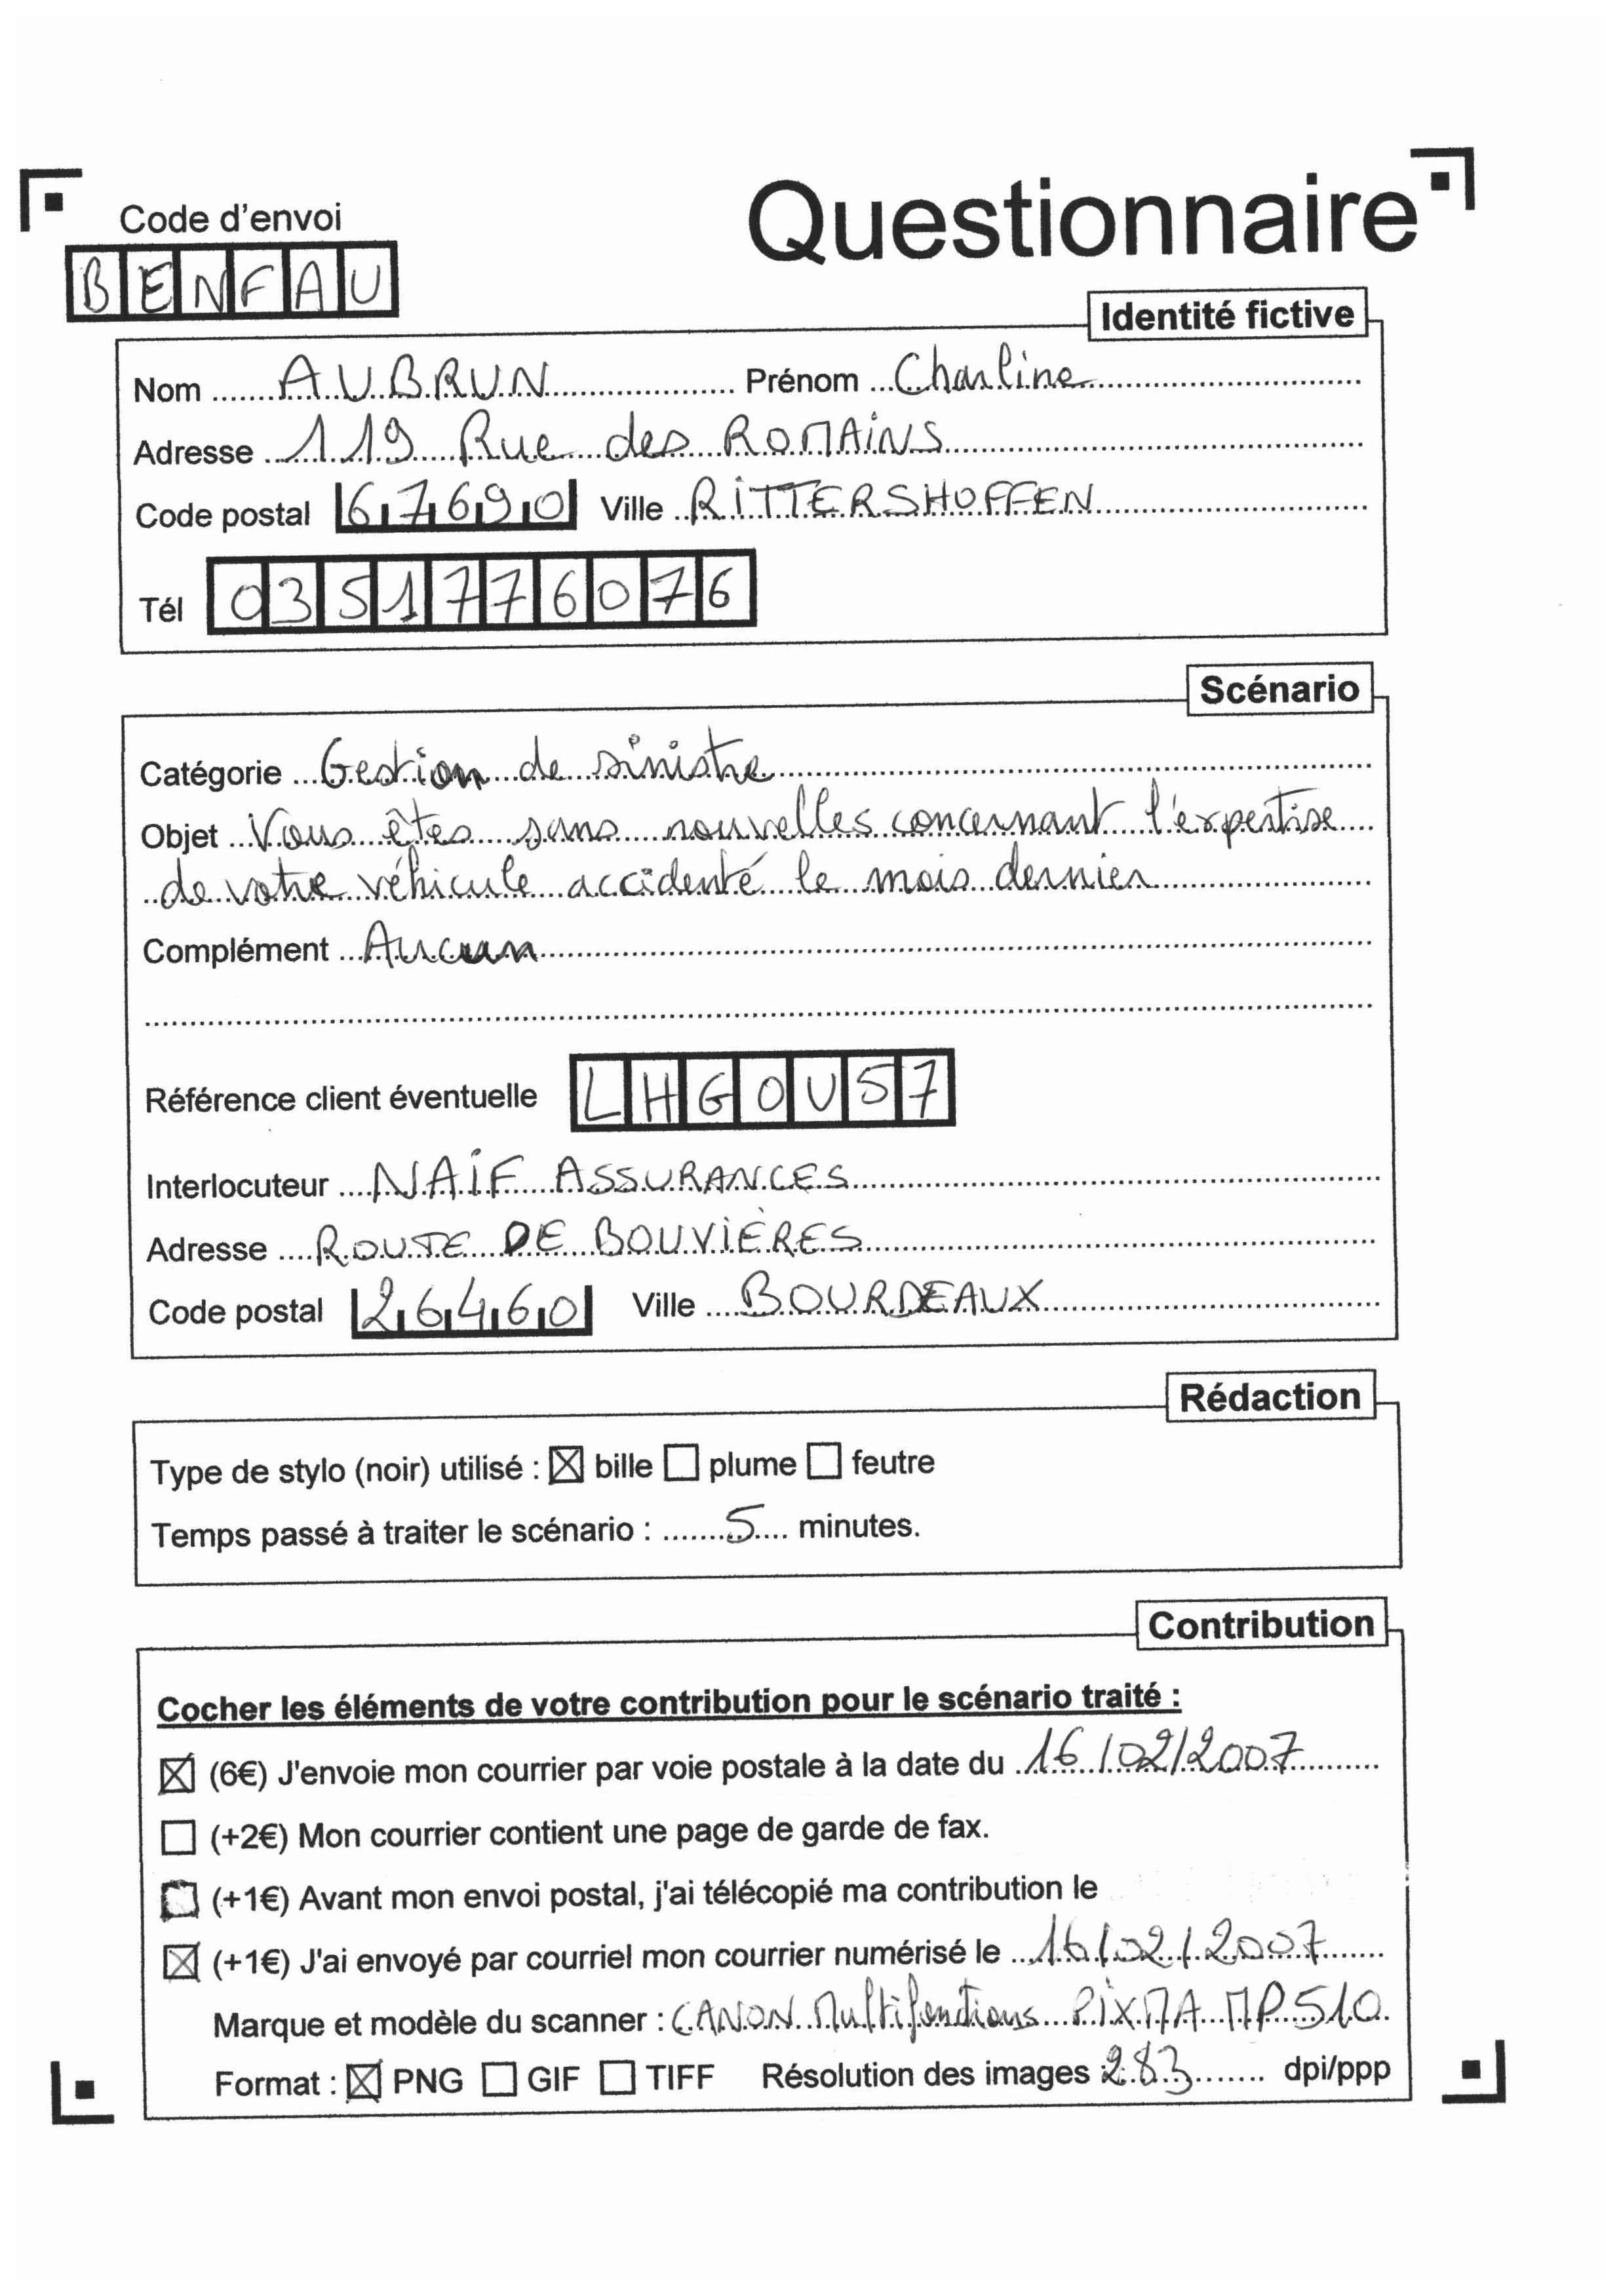 Questionnaire
Code d'envoi
BENFAU
Identité fictive
Nom AUBRUN Prénom Charline
Adresse 119 Rue des ROMAiNS
Code postal 67690 Ville RiTTERSHOFFEN
Tél 0351776076
Scénario
Catégorie Gestion de sinistre
Objet Vous êtes sans nouvelles concernant l'expertise
de votre véhicule accidenté le mois dernier
Complément Aucun
Référence client éventuelle LHGOU57
Interlocuteur NAiF ASSURANCES
Adresse ROUTE DE BOUViÈRES
Code postal 26460 Ville BOURDEAUX
Rédaction
Type de stylo (noir) utilisé : ☒ bille ☐ plume ☐ feutre
Temps passé à traiter le scénario : 5 minutes.
Contribution
Cocher les éléments de votre contribution pour le scénario traité :
☒ (6€) J'envoie mon courrier par voie postale à la date du 16/02/2007
☐ (+2€) Mon courrier contient une page de garde de fax.
☐ (+1€) Avant mon envoi postal, j'ai télécopié ma contribution le
☒ (+1€) J'ai envoyé par courriel mon courrier numérisé le 16/02/2007
Marque et modèle du scanner : CANON Multifonctions PiXMA MP510
Format : ☒ PNG ☐ GIF ☐ TIFF Résolution des images : 283 dpi/ppp